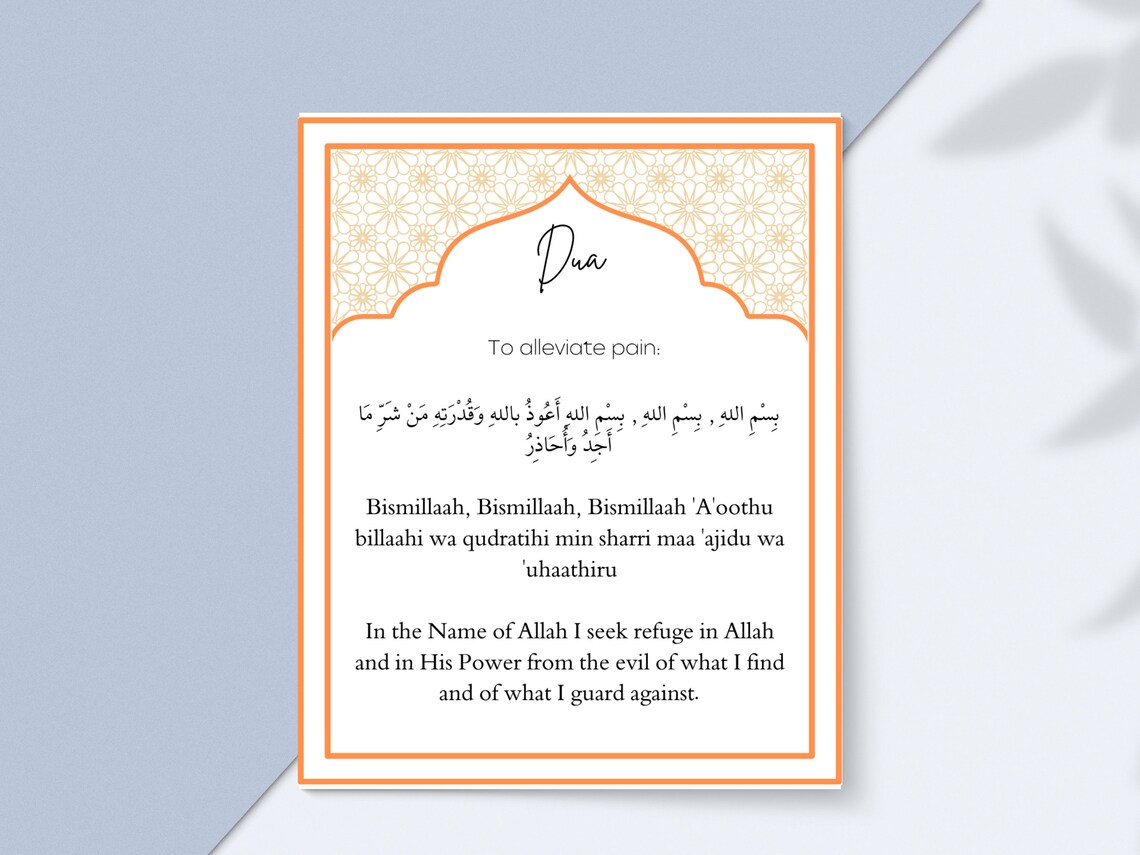 Dua
To alleviate pain:
بِسْمِ اللهِ , بِسْمِ اللهِ , بِسْمِ اللهِ أَعُوذُ باللهِ وَقُدْرَتِهِ مَنْ شَرِّ مَا
أَجَدِ وَأُحَاذِرُ
Bismillaah, Bismillaah, Bismillaah 'A'oothu
billaahi wa qudratihi min sharri maa 'ajidu wa
'uhaathiru
In the Name of Allah I seek refuge in Allah
and in His Power from the evil of what I find
and of what I guard against.